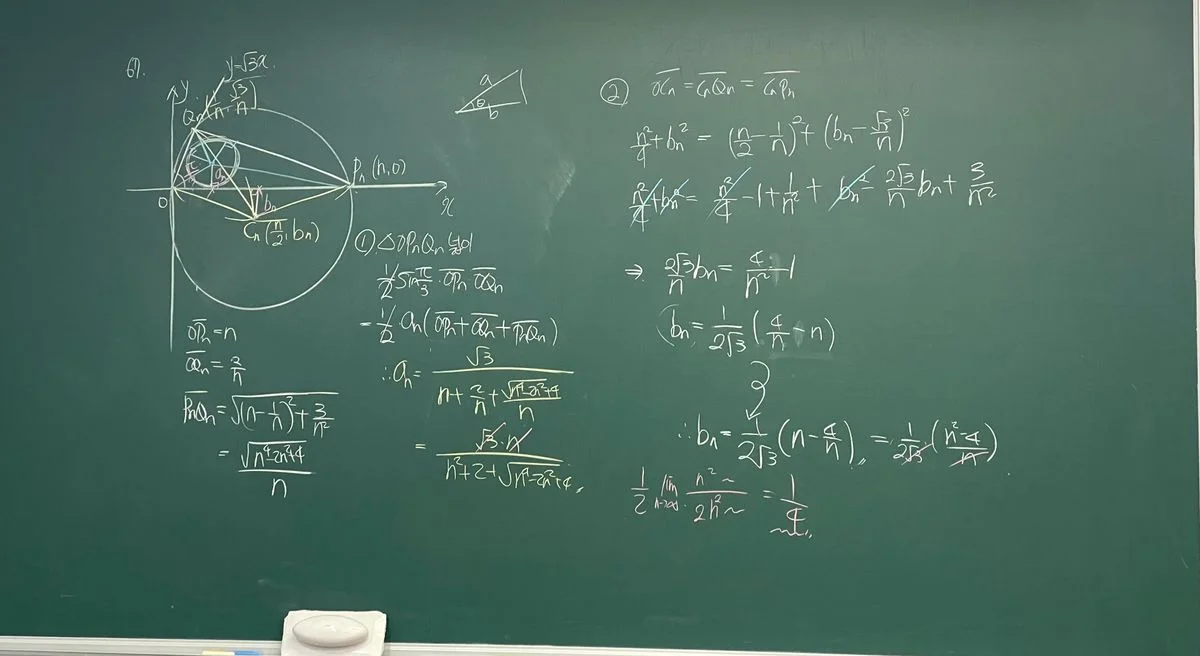 67.
y
y=√3x
Qₙ(1/n, √3/n)
Pₙ(n,0)
x
O
aₙ
bₙ
Cₙ(n/2, bₙ)
a
θ
b
OPₙ=n
OQₙ=2/n
PₙQₙ=√((n-1/n)²+3/n²)
=√(n⁴-2n²+4)/n
① △OPₙQₙ 넓이
1/2 sin π/3 · OPₙ OQₙ
=1/2 aₙ(OPₙ+OQₙ+PₙQₙ)
∴aₙ=√3/(n+2/n+√(n⁴-2n²+4)/n)
=√3·n/(n²+2+√(n⁴-2n²+4))
② OCₙ=CₙQₙ=CₙPₙ
n²/4+bₙ²=(n/2-1/n)²+(bₙ-√3/n)²
n²/4+bₙ²=n²/4-1+1/n²+bₙ²-2√3/n bₙ+3/n²
⇒ 2√3/n bₙ=4/n²-1
(bₙ=1/2√3(4/n-n)
∴bₙ=1/2√3(n-4/n)〃=1/2√3((n²-4)/n)
1/2 lim n→∞ n²~/2n²~=1/4